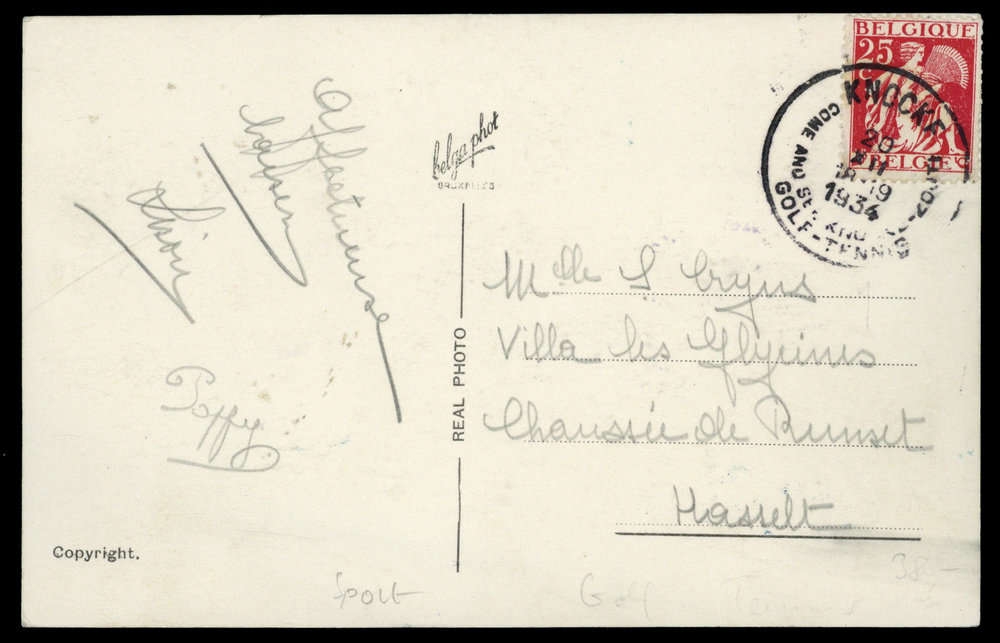 BELGIQUE
25
C
BELGIE
KNOCKE
20
VII
18-19
1934
COME AND SEE KNOCKE
GOLF-TENNIS
Affectueuse
Poffy
belga phot
BRUXELLES
REAL PHOTO
Mlle S
Villa les Glycines
Chaussée de Runxt
Hasselt
Copyright.
Sport
Golf Tennis
385-